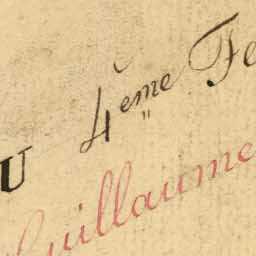 U 4eme Fe
Guillaume